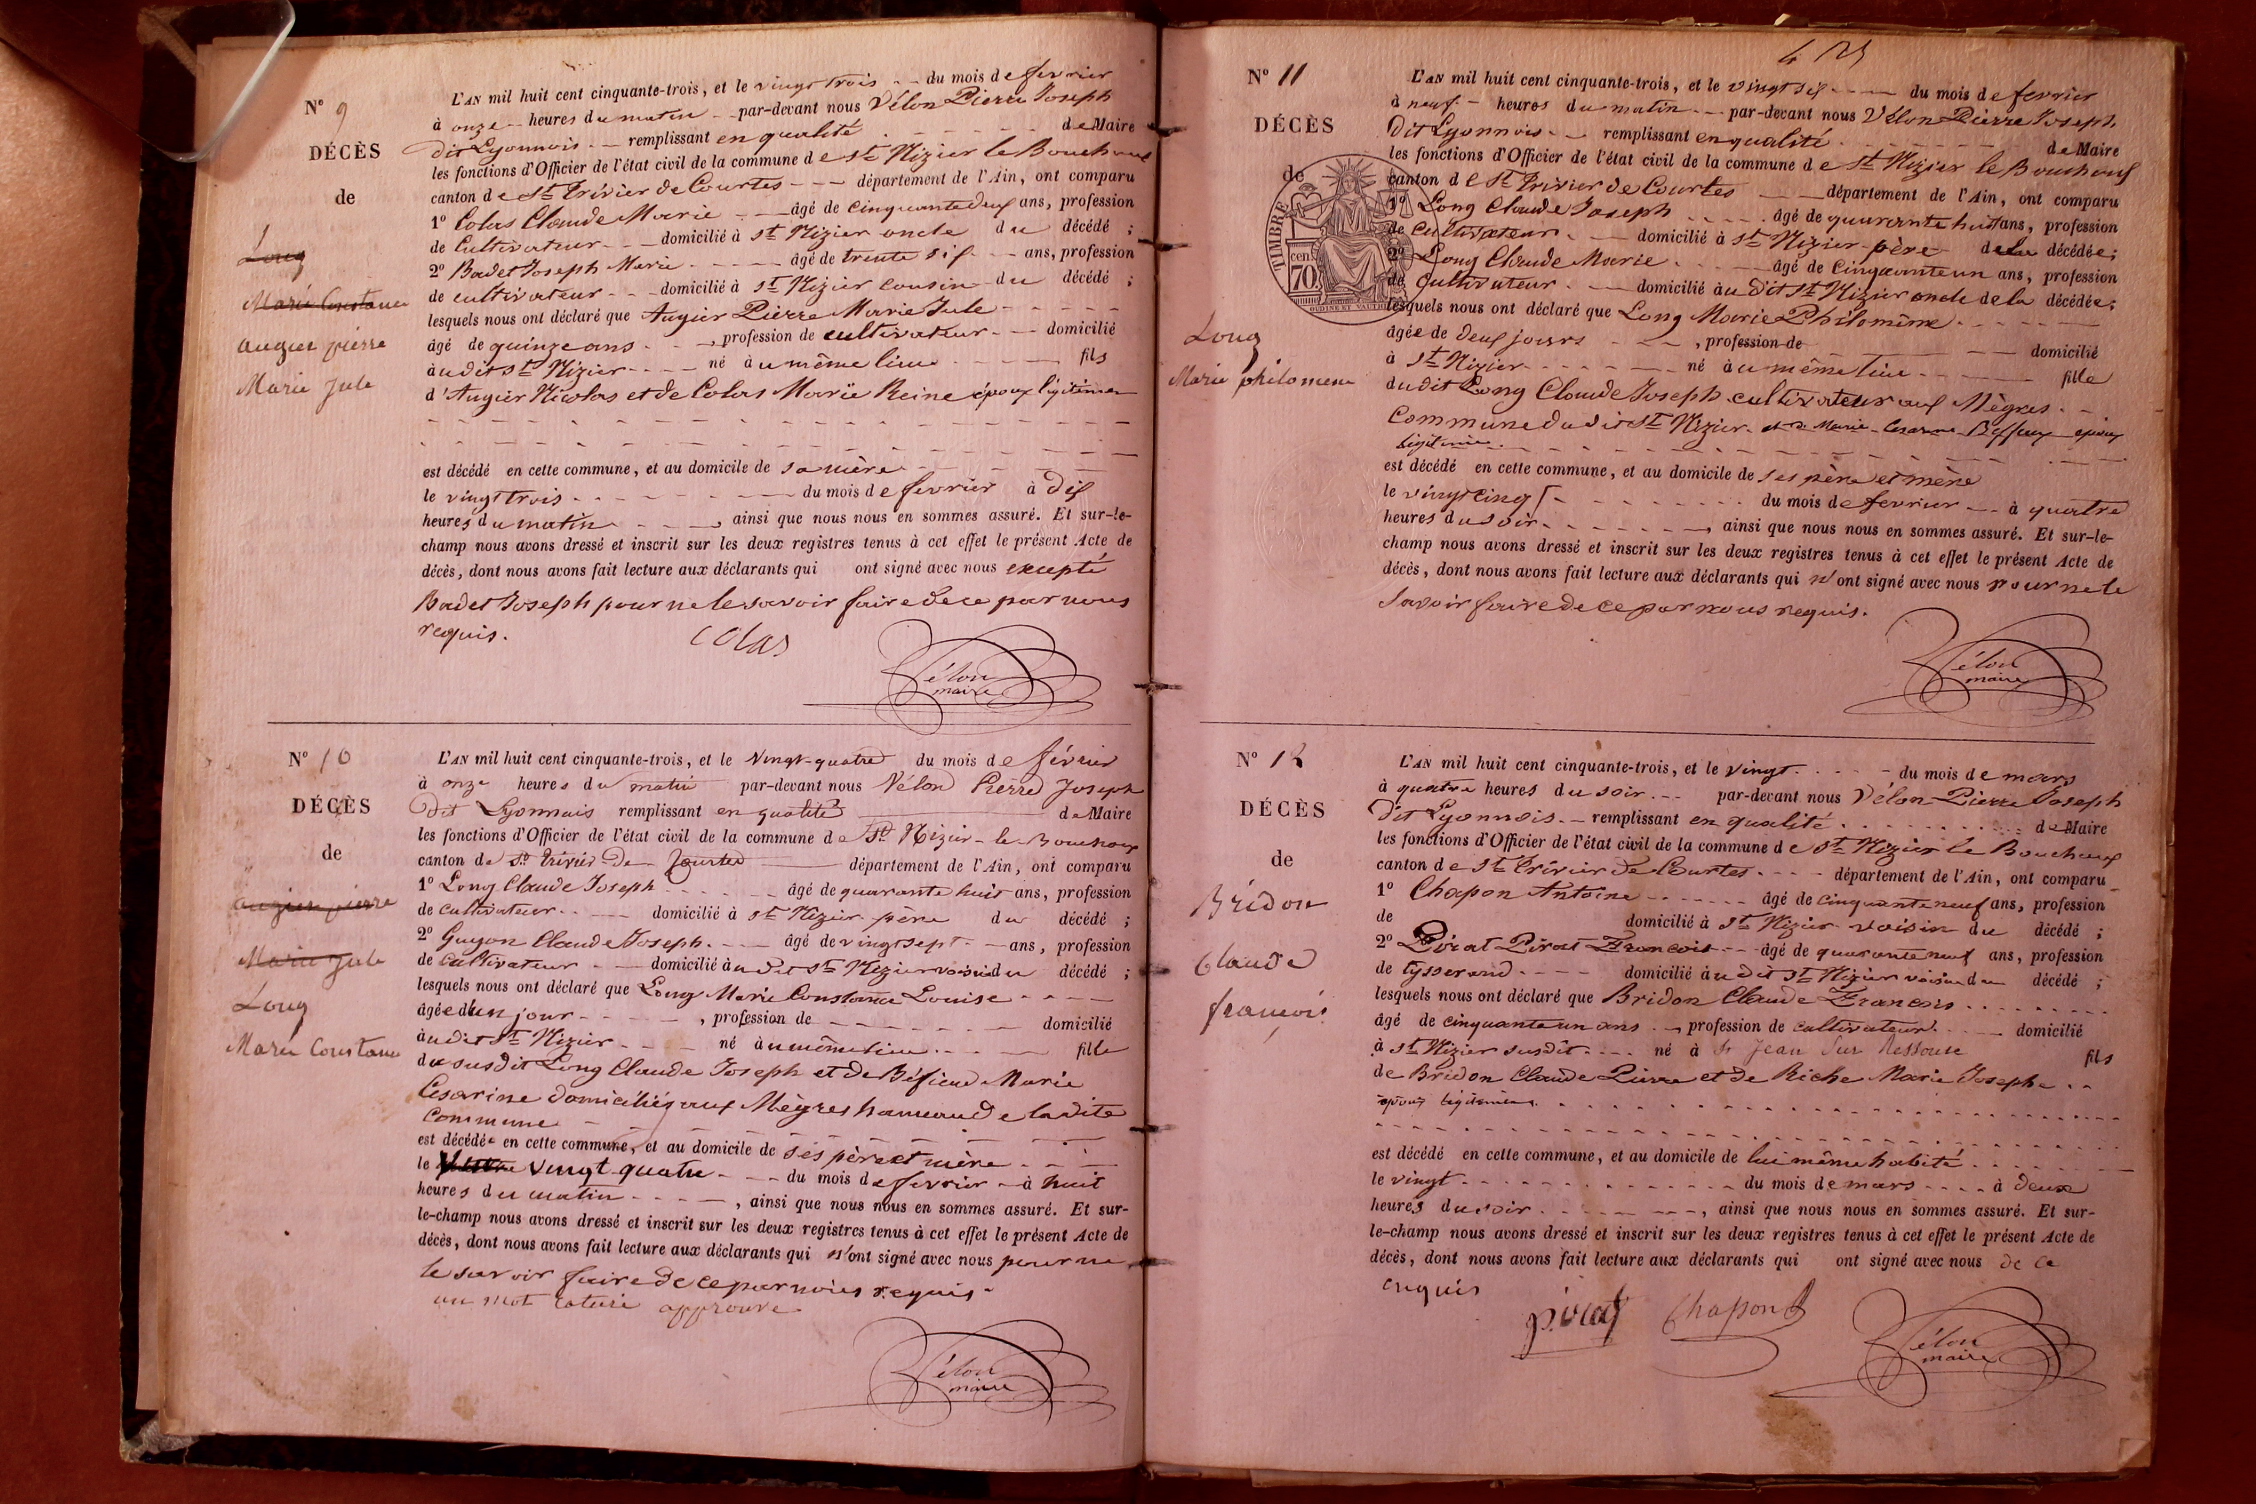 N° 9
DÉCÈS
de
Long
Marie Constance
augier pierre
Marie Jule
L'AN mil huit cent cinquante-trois, et le vingt trois du mois de fevrier
à onze heures du matin par-devant nous Vélon Pierre Joseph
dit Lyonnois remplissant en qualité de Maire
les fonctions d'Officier de l'état civil de la commune de St Nizier le Bouchoux
canton de St Trivier de Courtes département de l'Ain, ont comparu
1° Colas Claude Marie âgé de cinquante deux ans, profession
de Cultivateur domicilié à St Nizier oncle du décédé ;
2° Badet Joseph Marie âgé de trente six ans, profession
de cultivateur domicilié à St Nizier cousin du décédé ;
lesquels nous ont déclaré que Augier Pierre Marie Jule
âgé de quinze ans , profession de cultivateur domicilié
àudit St Nizier né àu même lieu fils
d'Augier Nicolas et de Colas Marie Reine époux légitimes
est décédé en cette commune, et au domicile de sa mère
le vingt trois du mois de fevrier à dix
heures du matin , ainsi que nous nous en sommes assuré. Et sur-le-
champ nous avons dressé et inscrit sur les deux registres tenus à cet effet le présent Acte de
décès, dont nous avons fait lecture aux déclarants qui ont signé avec nous excepté
Badet Joseph pour ne le savoir faire de ce par nous
requis.
Colas
Vélon
maire
N° 10
DÉCÈS
de
augier pierre
Marie Jule
Long
Marie Constance
L'AN mil huit cent cinquante-trois, et le Vingt-quatre du mois de février
à onze heures du matin par-devant nous Vélon Pierre Joseph
dit Lyonnais remplissant en qualité de Maire
les fonctions d'Officier de l'état civil de la commune de St Nizier-le-Bouchoux
canton de St Trivier-de-Courtes département de l'Ain, ont comparu
1° Long Claude Joseph âgé de quarante huit ans, profession
de cultivateur domicilié à St Nizier père du décédé ;
2° Guyon Claude Joseph. âgé de vingt sept ans, profession
de cultivateur domicilié àu dit St Nizier voisin du décédé ;
lesquels nous ont déclaré que Long Marie Constance Louise
âgée d'un jour , profession de domicilié
àudit St Nizier né àu même lieu fille
du susdit Long Claude Joseph et de Béfieud Marie
Cesarine domiciliés aux Mègres hameau de la dite
Commune
est décédée en cette commune, et au domicile de ses père et mère
le vingt quatre du mois de fevrier à huit
heures du matin , ainsi que nous nous en sommes assuré. Et sur-
le-champ nous avons dressé et inscrit sur les deux registres tenus à cet effet le présent Acte de
décès, dont nous avons fait lecture aux déclarants qui n'ont signé avec nous pour ne
le savoir faire de ce par nous requis.
un mot raturé approuvé
Vélon
maire
N° 11
DÉCÈS
de
TIMBRE
70
cen.
OUDINE ET VAUTHIER
Long
Marie philomene
L'AN mil huit cent cinquante-trois, et le vingt six du mois de fevrier
à neuf heures du matin par-devant nous Vélon Pierre Joseph
dit Lyonnois remplissant en qualité de Maire
les fonctions d'Officier de l'état civil de la commune de St Nizier le Bouchoux
canton de St Trivier de Courtes département de l'Ain, ont comparu
1° Long Claude Joseph âgé de quarante huit ans, profession
de cultivateur domicilié à St Nizier père de la décédée ;
2° Long Claude Marie âgé de cinquante un ans, profession
de Cultivateur domicilié àu dit St Nizier oncle de la décédée ;
lesquels nous ont déclaré que Long Marie Philomène
âgée de deux jours , profession de domicilié
à St Nizier né àu même lieu fille
dudit Long Claude Joseph cultivateur aux Mègres
Commune dudit St Nizier et de Marie Cesarine époux
légitimes
est décédé en cette commune, et au domicile de ses père et mère
le vingt cinq du mois de fevrier à quatre
heures du soir , ainsi que nous nous en sommes assuré. Et sur-le-
champ nous avons dressé et inscrit sur les deux registres tenus à cet effet le présent Acte de
décès, dont nous avons fait lecture aux déclarants qui n'ont signé avec nous pour ne le
savoir faire de ce par nous requis.
Vélon
maire
N° 12
DÉCÈS
de
Bridon
Claude
françois
L'AN mil huit cent cinquante-trois, et le vingt du mois de mars
à quatre heures du soir par-devant nous Vélon Pierre Joseph
dit Lyonnois remplissant en qualité de Maire
les fonctions d'Officier de l'état civil de la commune de St Nizier le Bouchoux
canton de St Trivier de Courtes département de l'Ain, ont comparu
1° Chapon Antoine âgé de cinquante neuf ans, profession
de domicilié à St Nizier voisin du décédé ;
2° Pirat Pirat Francois âgé de quarante neuf ans, profession
de tysserand domicilié àu dit St Nizier voisin du décédé ;
lesquels nous ont déclaré que Bridon Claude Francois
âgé de cinquante un ans , profession de cultivateur domicilié
à St Nizier susdit né à St Jean Sur Ressouse fils
de Bridon Claude Pierre et de Riche Marie Josephe
époux légitimes
est décédé en cette commune, et au domicile de lui même habité
le vingt du mois de mars à deux
heures du soir , ainsi que nous nous en sommes assuré. Et sur-
le-champ nous avons dressé et inscrit sur les deux registres tenus à cet effet le présent Acte de
décès, dont nous avons fait lecture aux déclarants qui ont signé avec nous de ce
enquis
pirat Chapon
Vélon
maire